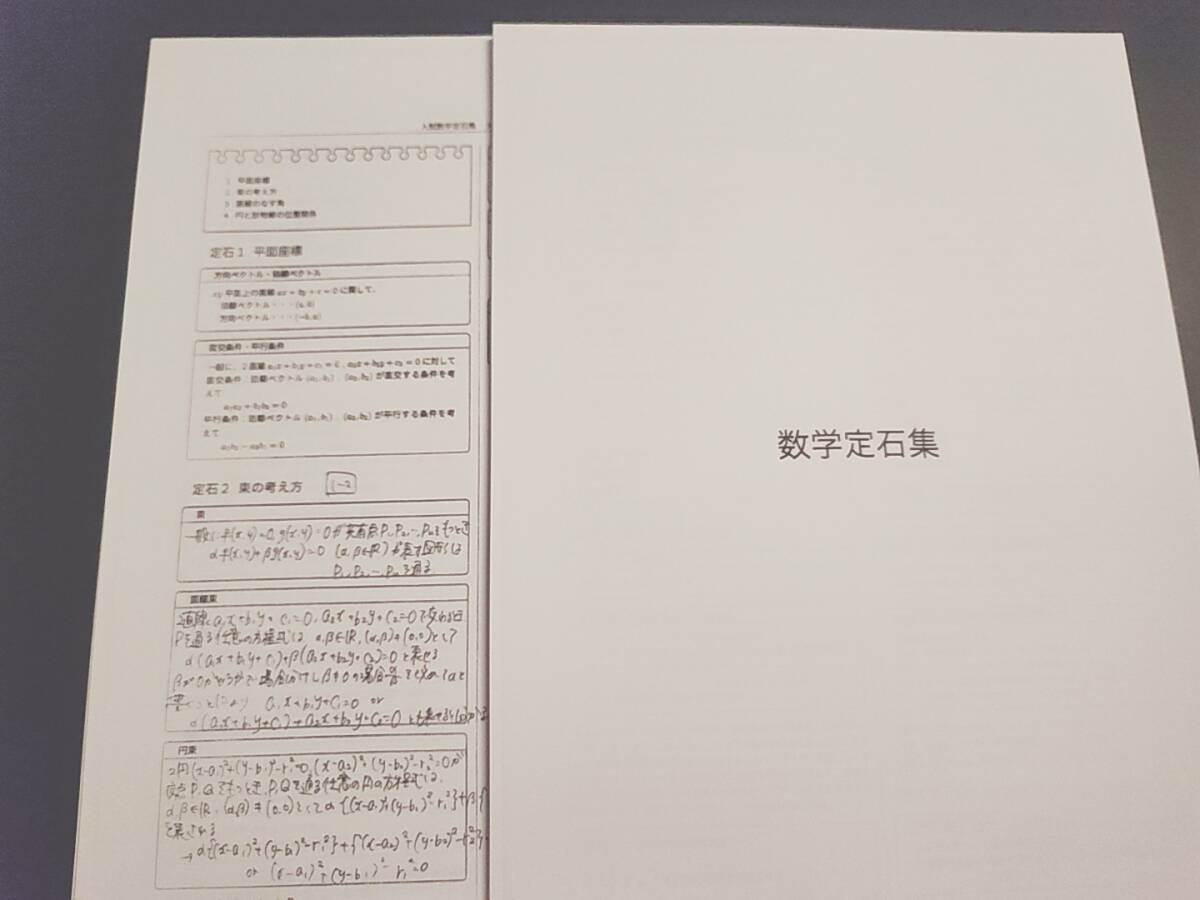 入試数学定石集
1 平面座標
2 束の考え方
3 直線のなす角
4 円と放物線の位置関係
定石1 平面座標
方向ベクトル・法線ベクトル
xy平面上の直線 ax + by + c = 0 に関して、
法線ベクトル・・・(a, b)
方向ベクトル・・・(−b, a)
直交条件・平行条件
一般に、2直線 a₁x + b₁y + c₁ = 0, a₂x + b₂y + c₂ = 0 に対して
直交条件：法線ベクトル (a₁, b₁), (a₂, b₂) が直交する条件を考
えて
a₁a₂ + b₁b₂ = 0
平行条件：法線ベクトル (a₁, b₁), (a₂, b₂) が平行する条件を考
えて
a₁b₂ − a₂b₁ = 0
定石2 束の考え方 1-2
束
一般に f(x,y)=0, g(x,y)=0が共有点P₁,P₂,…,Pnをもつとき
αf(x,y)+βg(x,y)=0 (α,β∈R)が表す図形は
P₁,P₂,…,Pnを通る
直線束
2直線a₁x+b₁y+c₁=0, a₂x+b₂y+c₂=0で交わる点
Pを通る任意の方程式は α,β∈R, (α,β)≠(0,0)として
α(a₁x+b₁y+c₁)+β(a₂x+b₂y+c₂)=0 と表せる
βが0かどうかで場合分けしβ≠0の場合
a₁x+b₁y+c₁=0 or
α(a₁x+b₁y+c₁)+a₂x+b₂y+c₂=0 とも表せる
円束
2円(x-a₁)²+(y-b₁)²-r₁²=0, (x-a₂)²+(y-b₂)²-r₂²=0が
交点P,Qをもつとき、P,Qを通る任意の円の方程式は、
α,β∈R, (α,β)≠(0,0)としてα{(x-a₁)²+(y-b₁)²-r₁²}+β{
と表される
→α{(x-a₁)²+(y-b₁)²-r₁²}+{(x-a₂)²+(y-b₂)²-r₂²}
or (x-a₁)²+(y-b₁)²-r₁²=0
数学定石集